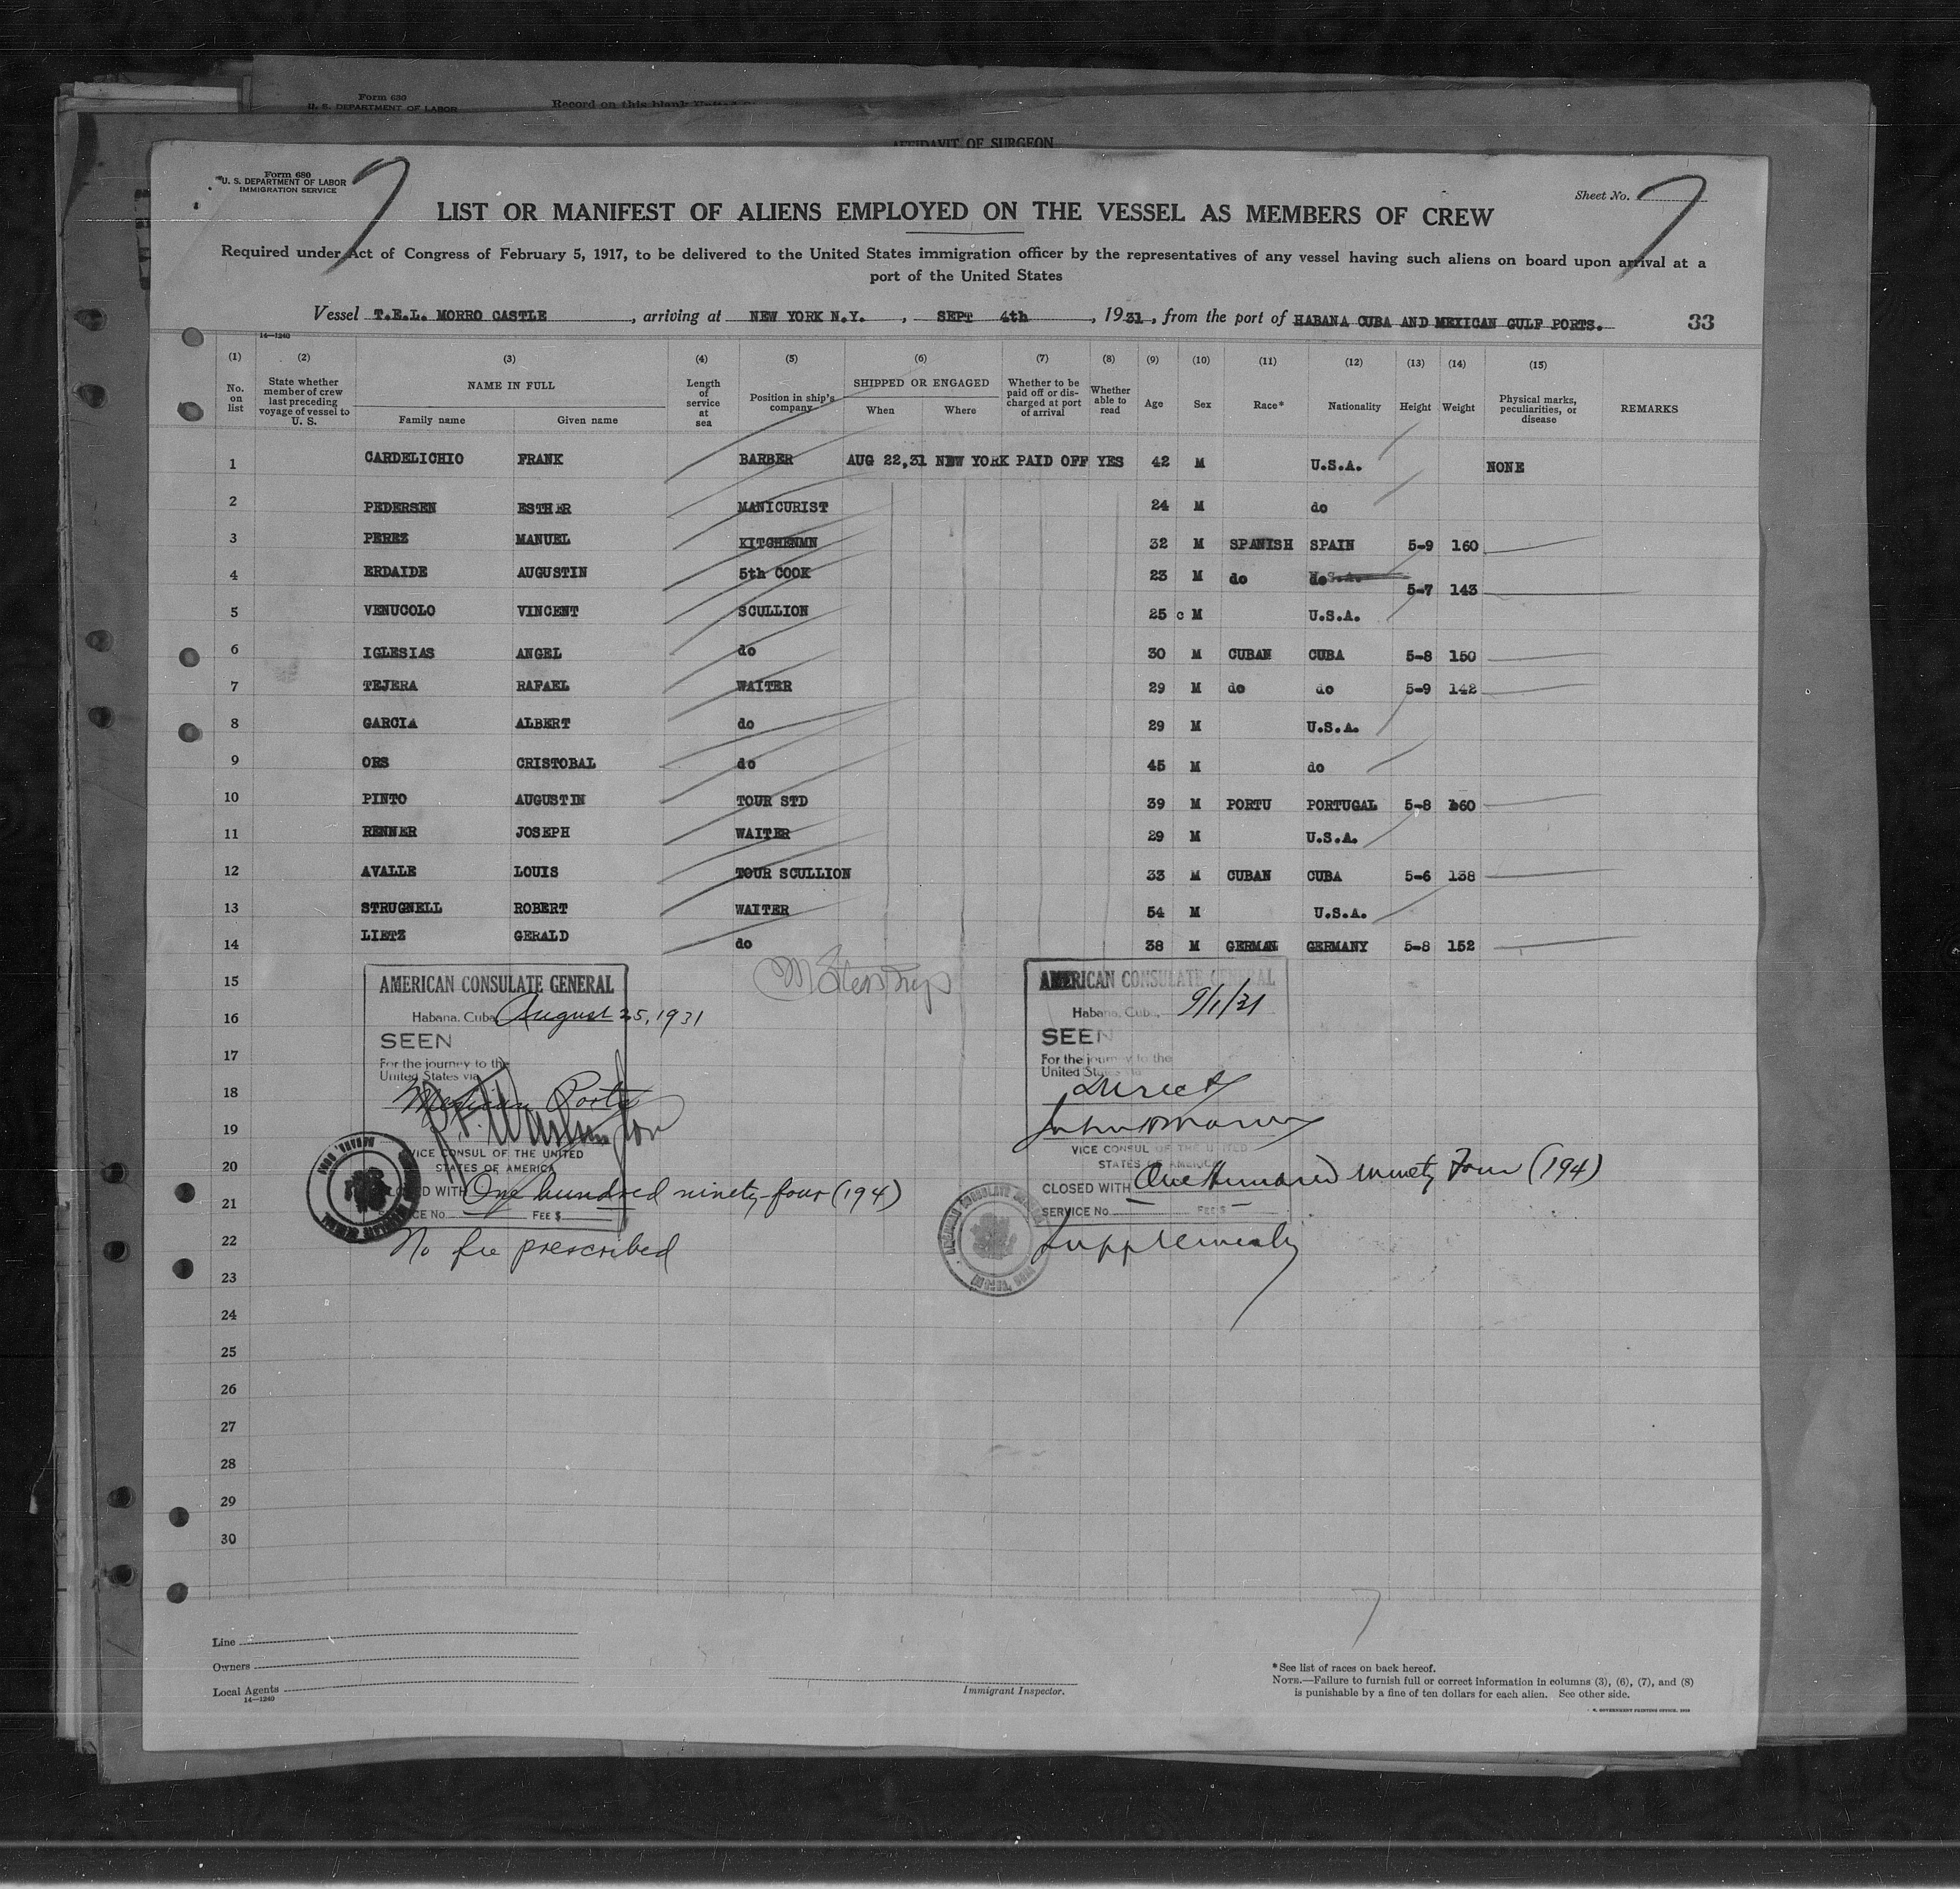 Form 630
U. S. DEPARTMENT OF LABOR
Record on this blank United
AFFIDAVIT OF SURGEON
Form 680
U. S. DEPARTMENT OF LABOR
IMMIGRATION SERVICE
Sheet No. 7
7
LIST OR MANIFEST OF ALIENS EMPLOYED ON THE VESSEL AS MEMBERS OF CREW
Required under Act of Congress of February 5, 1917, to be delivered to the United States immigration officer by the representatives of any vessel having such aliens on board upon arrival at a
port of the United States
Vessel T.E.L. MORRO CASTLE, arriving at NEW YORK N.Y., SEPT 4th, 1931, from the port of HABANA CUBA AND MEXICAN GULF PORTS. 33
14—1240
(1) (2) (3) (4) (5) (6) (7) (8) (9) (10) (11) (12) (13) (14) (15)
No. on list
State whether member of crew last preceding voyage of vessel to U. S.
NAME IN FULL
Family name Given name
Length of service at sea
Position in ship's company
SHIPPED OR ENGAGED
When Where
Whether to be paid off or discharged at port of arrival
Whether able to read
Age Sex Race* Nationality Height Weight
Physical marks, peculiarities, or disease
REMARKS
1 CARDELICHIO FRANK BARBER AUG 22,31 NEW YORK PAID OFF YES 42 M U.S.A. NONE
2 PEDERSEN ESTHER MANICURIST 24 M do
3 PEREZ MANUEL KITCHENMN 32 M SPANISH SPAIN 5-9 160
4 ERDAIDE AUGUSTIN 5th COOK 23 M do do 5-7 143
5 VENUCOLO VINCENT SCULLION 25 c M U.S.A.
6 IGLESIAS ANGEL do 30 M CUBAN CUBA 5-8 150
7 TEJERA RAFAEL WAITER 29 M do do 5-9 142
8 GARCIA ALBERT do 29 M U.S.A.
9 ORS CRISTOBAL do 45 M do
10 PINTO AUGUSTIN TOUR STD 39 M PORTU PORTUGAL 5-8 160
11 RENNER JOSEPH WAITER 29 M U.S.A.
12 AVALLE LOUIS TOUR SCULLION 33 M CUBAN CUBA 5-6 138
13 STRUGNELL ROBERT WAITER 54 M U.S.A.
14 LIETZ GERALD do 38 M GERMAN GERMANY 5-8 152
15
16
17
18
19
20
21
22
23
24
25
26
27
28
29
30
AMERICAN CONSULATE GENERAL
Habana, Cuba, August 25, 1931
SEEN
For the journey to the
United States via
Mexican Ports
VICE CONSUL OF THE UNITED
STATES OF AMERICA
CLOSED WITH One hundred ninety-four (194)
SERVICE No. FEE $
No fee prescribed
AMERICAN CONSULATE GENERAL
Habana, Cuba, 9/1/31
SEEN
For the journey to the
United States via
Direct
VICE CONSUL OF THE UNITED
STATES OF AMERICA
CLOSED WITH One Hundred ninety Four (194)
SERVICE No. FEE $
Line
Owners
Local Agents
14—1240
Immigrant Inspector.
*See list of races on back hereof.
NOTE.—Failure to furnish full or correct information in columns (3), (6), (7), and (8)
is punishable by a fine of ten dollars for each alien. See other side.